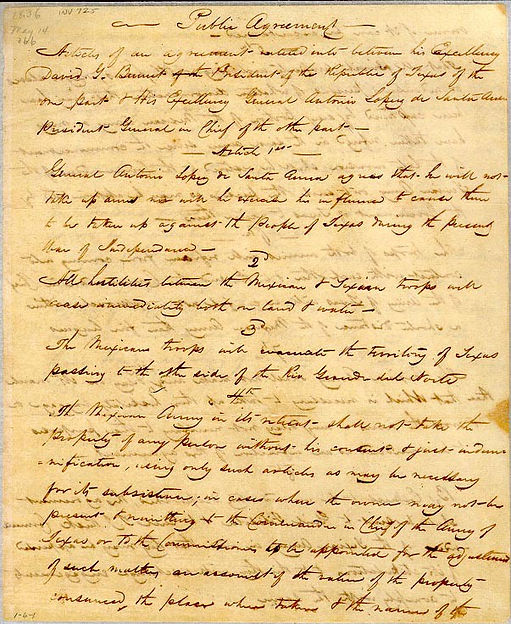 1836 inv 725
May 14
366
Public Agreement
Articles of an agreement entered into between his Excellency
David G. Burnet of the President of the Republic of Texas of the
one part & His Excellency General Antonio Lopez de Santa Anna
President General in Chief of the other part —
Article 1st —
General Antonio Lopez de Santa Anna agrees that he will not
take up arms nor will he exercise his influence to cause them
to be taken up against the People of Texas during the present
War of Independence —
2d
All hostilities between the Mexican & Texian troops will
cease immediately both on land & water —
3d
The Mexican troops will evacuate the territory of Texas
passing to the other side of the Rio Grande del Norte
4th
The Mexican Army in its retreat shall not take the
property of any person without his consent & just indem
=nification, using only such articles as may be necessary
for its subsistence, in cases when the owner may not be
present & remitting to the Commander in Chief of the Army of
Texas or to the Commissioners to be appointed for the adjustment
of such matters an account of the value of the property
consumed, the place where taken & the name of the
1-6-1